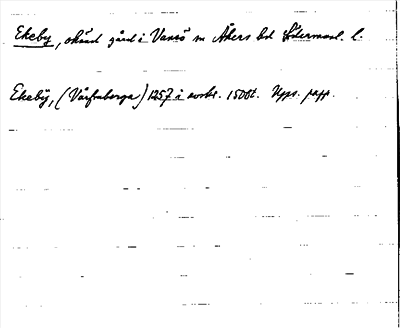 Ekeby, okänd gård i Vansö sn Åkers hd Södermanl. l.
Ekeby, (Vårfruberga) 1257 i avskr. 1500t. Upps. papp.